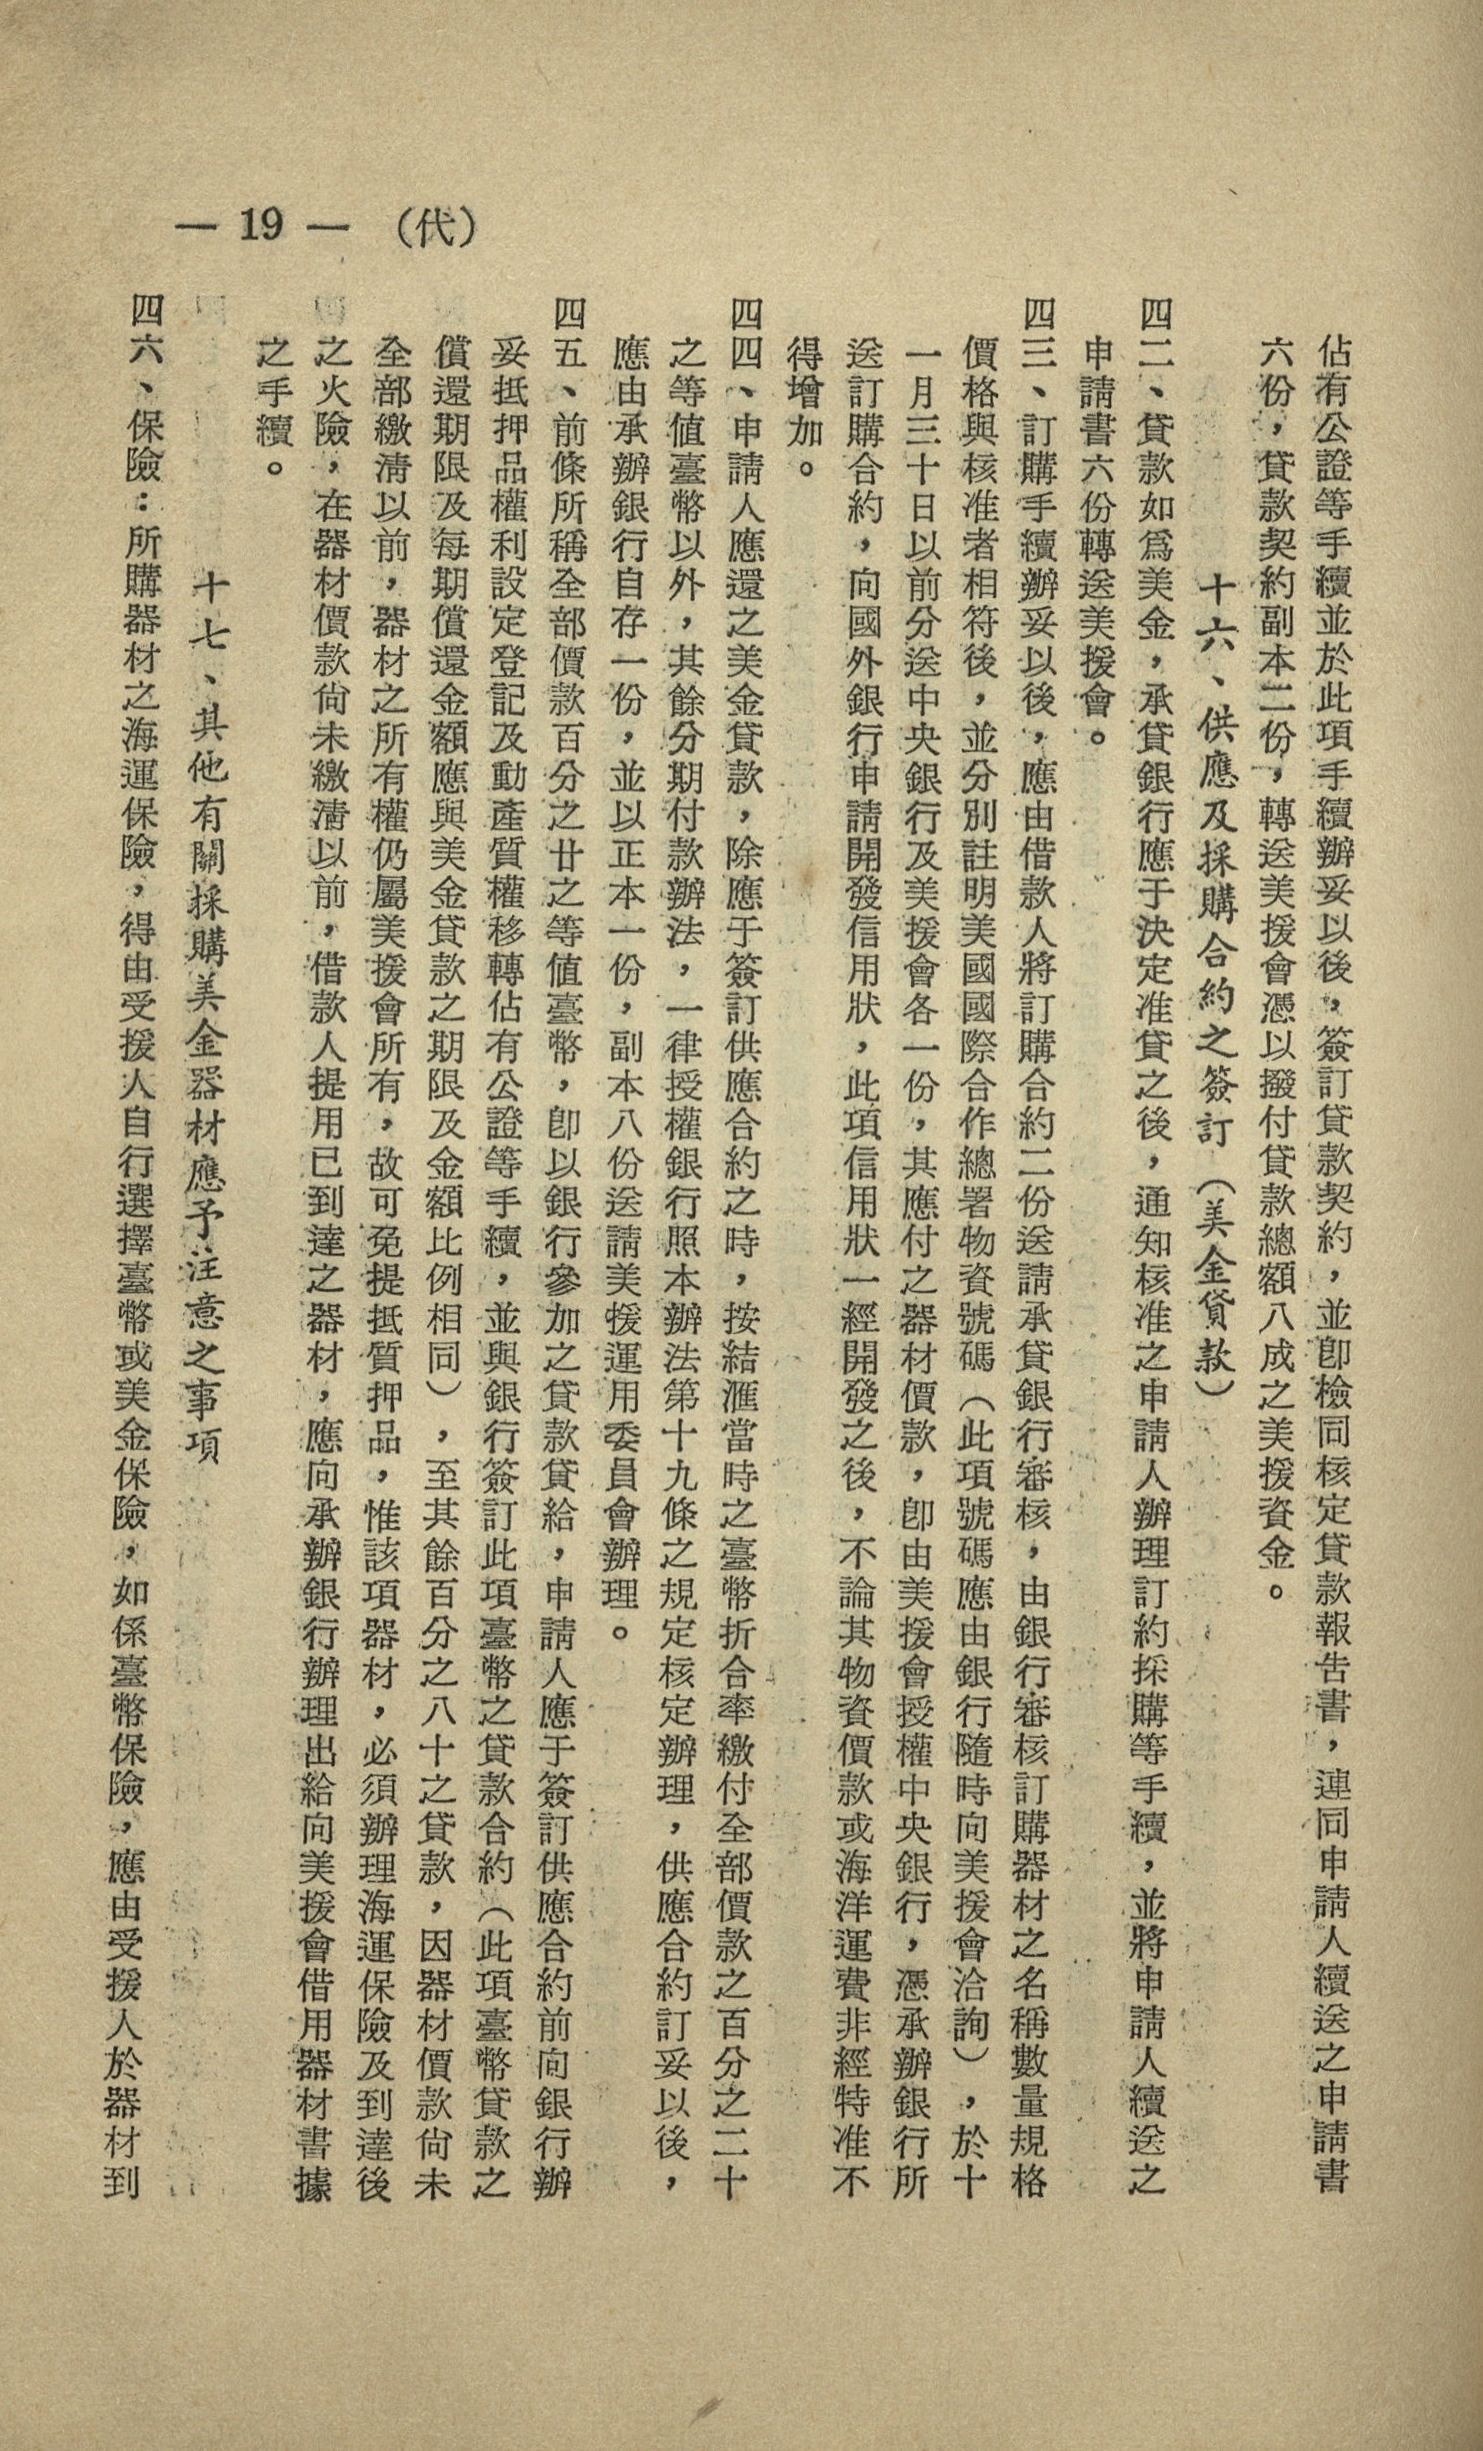 — 19 —　（代）
佔有公證等手續並於此項手續辦妥以後，簽訂貸款契約，並卽檢同核定貸款報告書，連同申請人續送之申請書
六份，貸款契約副本二份，轉送美援會憑以撥付貸款總額八成之美援資金。
十六、供應及採購合約之簽訂（美金貸款）
四二、貸款如爲美金，承貸銀行應于決定准貸之後，通知核准之申請人辦理訂約採購等手續，並將申請人續送之
申請書六份轉送美援會。
四三、訂購手續辦妥以後，應由借款人將訂購合約二份送請承貸銀行審核，由銀行審核訂購器材之名稱數量規格
價格與核准者相符後，並分別註明美國國際合作總署物資號碼（此項號碼應由銀行隨時向美援會洽詢），於十
一月三十日以前分送中央銀行及美援會各一份，其應付之器材價款，卽由美援會授權中央銀行，憑承辦銀行所
送訂購合約，向國外銀行申請開發信用狀，此項信用狀一經開發之後，不論其物資價款或海洋運費非經特准不
得增加。
四四、申請人應還之美金貸款，除應于簽訂供應合約之時，按結滙當時之臺幣折合率繳付全部價款之百分之二十
之等値臺幣以外，其餘分期付款辦法，一律授權銀行照本辦法第十九條之規定核定辦理，供應合約訂妥以後，
應由承辦銀行自存一份，並以正本一份，副本八份送請美援運用委員會辦理。
四五、前條所稱全部價款百分之廿之等値臺幣，卽以銀行參加之貸款貸給，申請人應于簽訂供應合約前向銀行辦
妥抵押品權利設定登記及動產質權移轉佔有公證等手續，並與銀行簽訂此項臺幣之貸款合約（此項臺幣貸款之
償還期限及每期償還金額應與美金貸款之期限及金額比例相同），至其餘百分之八十之貸款，因器材價款尙未
全部繳淸以前，器材之所有權仍屬美援會所有，故可免提抵質押品，惟該項器材，必須辦理海運保險及到達後
之火險，在器材價款尙未繳淸以前，借款人提用已到達之器材，應向承辦銀行辦理出給向美援會借用器材書據
之手續。
十七、其他有關採購美金器材應予注意之事項
四六、保險：所購器材之海運保險，得由受援人自行選擇臺幣或美金保險，如係臺幣保險，應由受援人於器材到